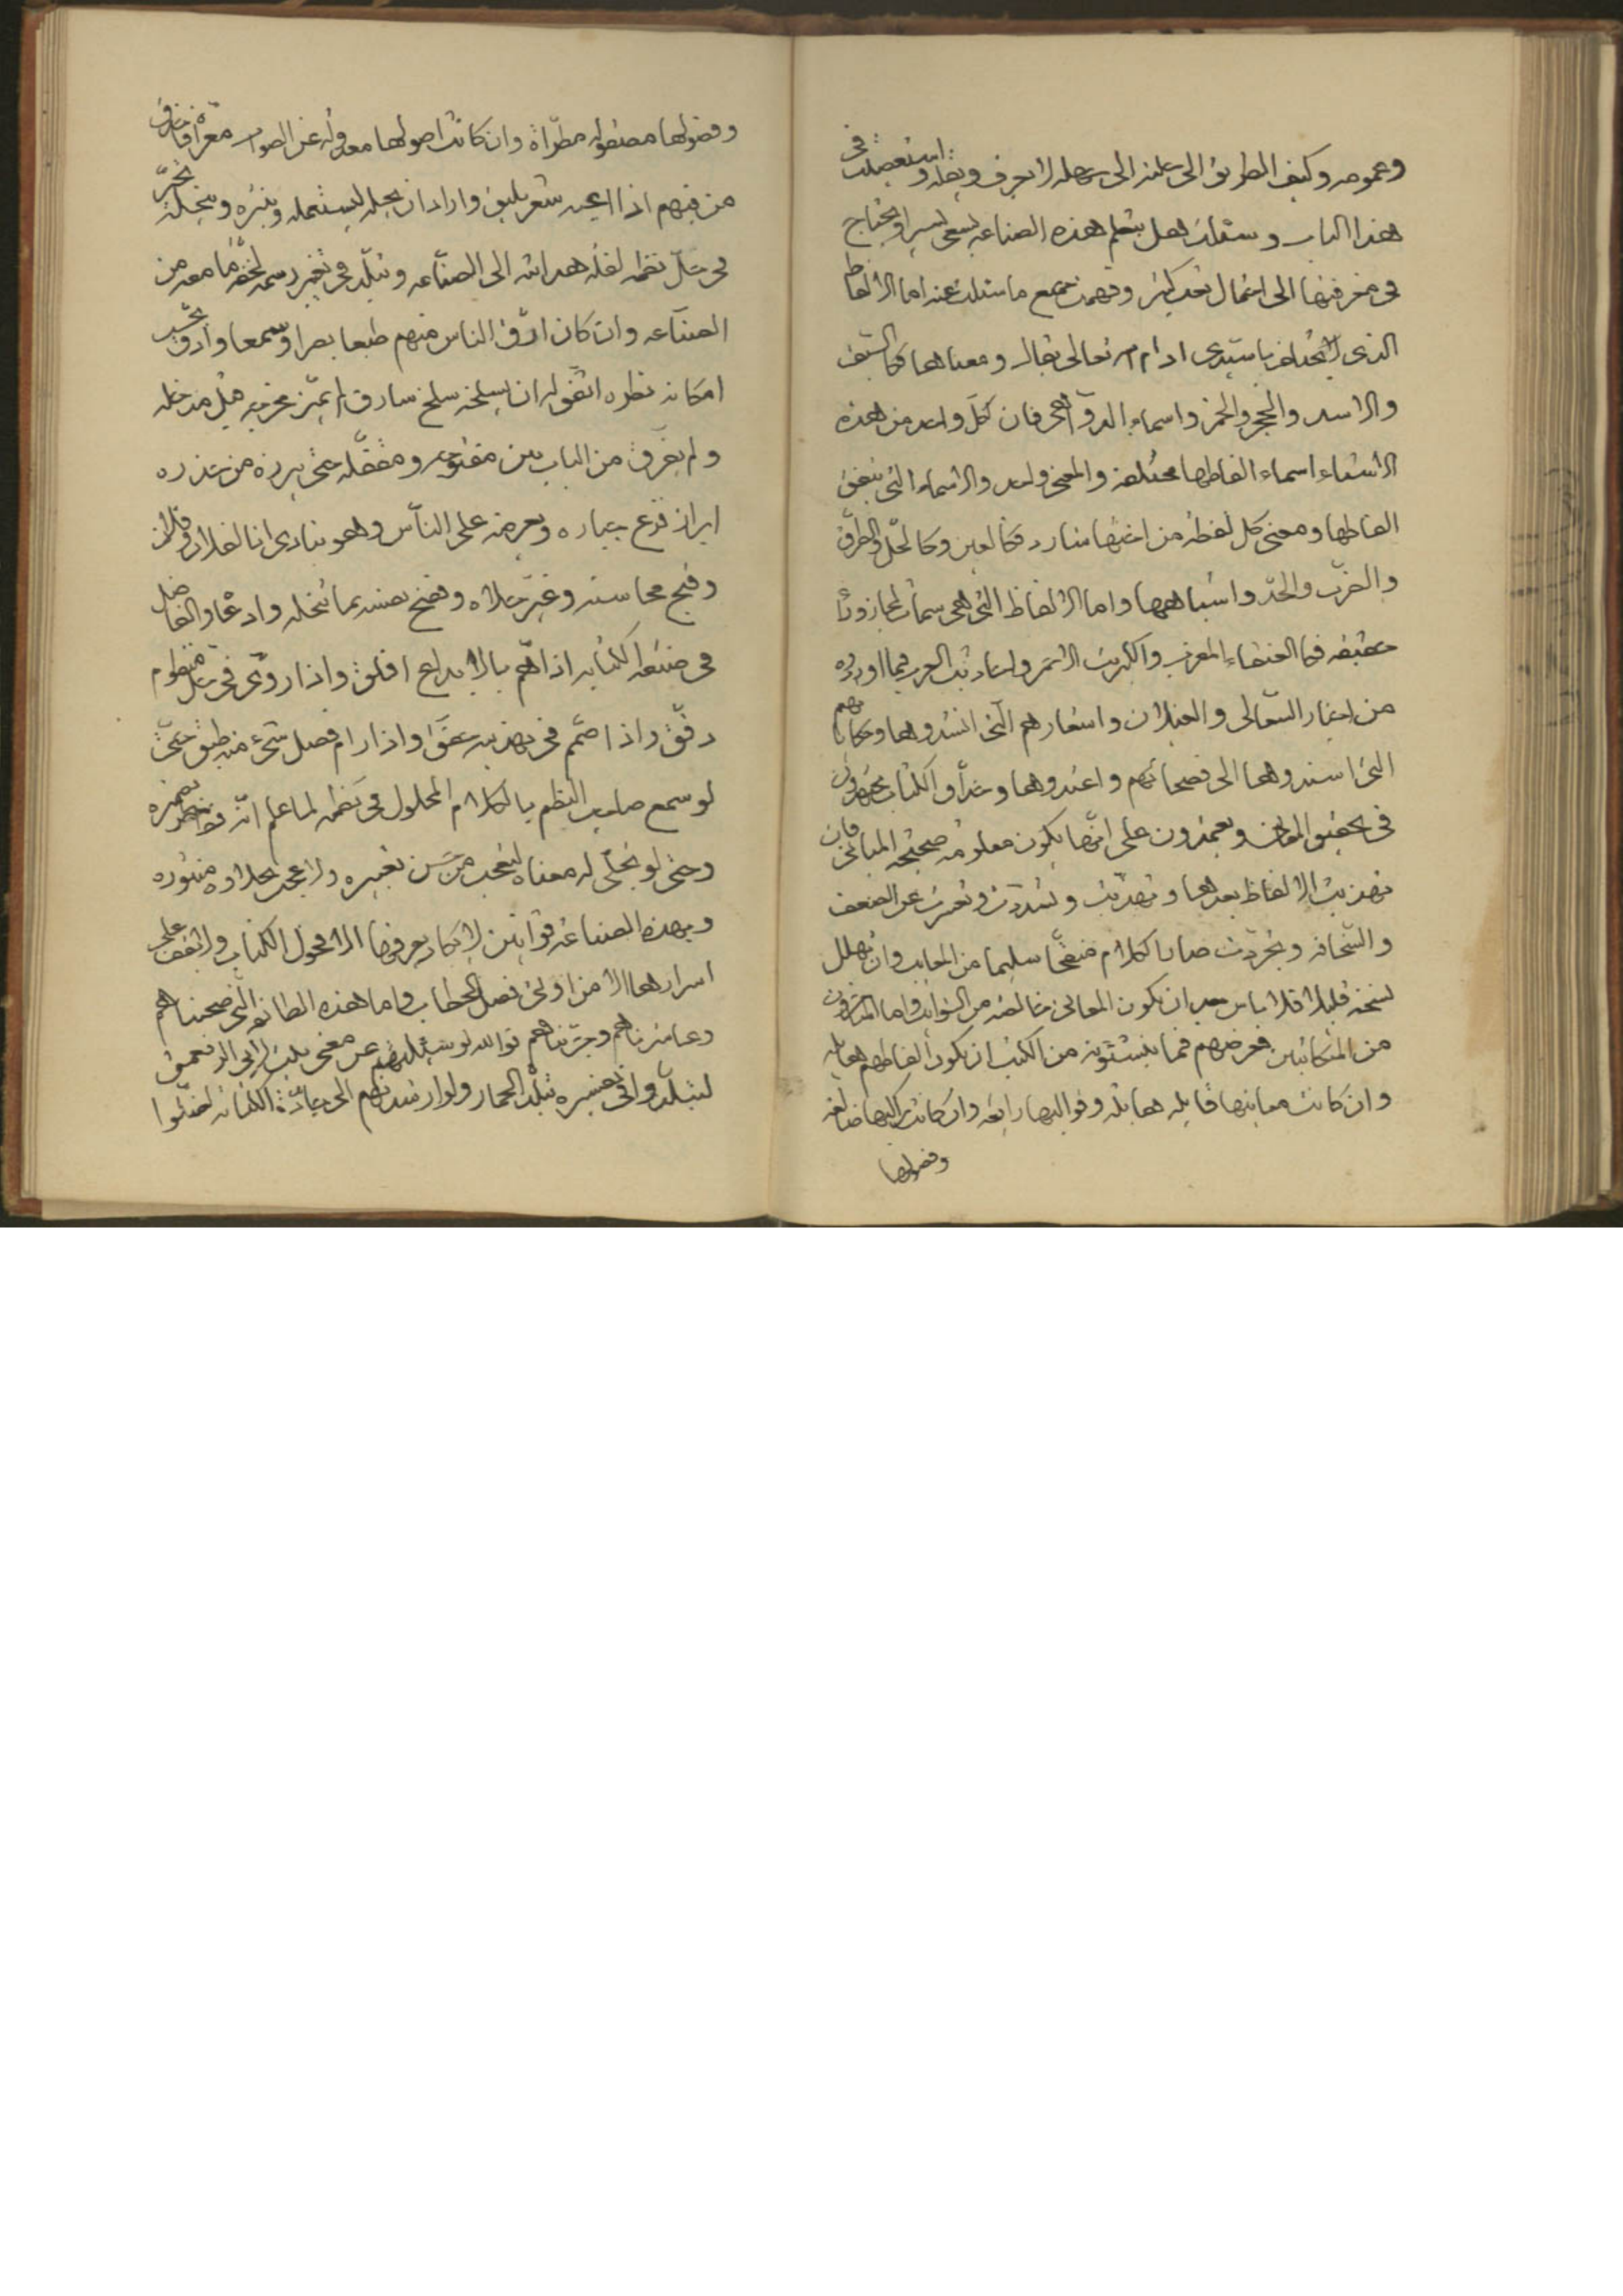 وعمومه وكيف الطريق الى علمه الى جهله لا يعرف وثقله واستعملت في
هذا الباب وسئلت هل يتعلم هذه الصناعه بسعى يسير او يحتاج
في معرفتها الى احتمال تعب كثير وفهمت جميع ما سئلت عنه اما الالفاظ
الذى تختلف يا سيدى ادام الله تعالى ومعناها فكالسيف
والاسد والحجر والخمر واسماء اخر فان كل واحد من هذه
الاشياء اسماء الفاظها مختلفة والمعنى واحد والاسماء التى تتفق
الفاظها ومعنى كل لفظة من اختها شارد فكالعين وكالحل والطرق
والضرب والحد واشباهها واما الالفاظ التى هى سمات لمجاز دون
حقيقه فالعنقاء المغرب والكبريت الاحمر واحاديث العرب فيما اوردوه
من اخبار السعالى والغيلان واشعارهم التى انشدوها وحكاياتهم
التى اسندوها الى فصحائهم واعتدوها وحذاق الكتاب يجتهدون
في تحقيق المعانى ويعتمدون على انها يكون معلومة صحيحة المبانى فان
تهذيب الالفاظ بعدها وتهذبت وتشددت وتعرت عن الضعف
والسخافة وتجردت صار الكلام منقحا سليما من المعايب وان تهلل
نسخه قليلا فلا باس بعد ان يكون المعانى خالصه من الشوائب واما المتاخرون
من المتكاتبين فغرضهم فيما ينشئونه من الكتب ان يكون الفاظهم هايله
وان كانت معانيها قايله هايله وقوالبها رايعه وان كانت قلبها ضايعه
وفصولها
وفصولها مصقوله مطراة وان كانت اصولها معدوله عن الصواب معراة فاخذ
من فيهم اذا اعجبه شعر بليغ واراد ان يحله ليستعمله وينثره وينحله تحير
في حل نظمه لقله هدايته الى الصناعه وتبلد في تغيير رسمه لخفة ما معه من
الصناعه وان كان ادق الناس منهم طبعا بصرا وسمعا وادق بحسب
امكانه نظره اتفق له ان يسلخه سلخ سارق لم يميز مخرجه قبل مدخله
ولم يفرق من الباب بين مفتوحه ومقفله حتى يبرزه من خدره
ابراز فزع جباره ويعرضه على الناس وهو ينادى انا لفلان وفلان
وقبح محاسنه وغير حلاه وفضح نفسه بما نحله وادعاه والفاضل
في صنعه الكتابه اذا هم بالابداع افلق واذا روى في حل منظوم
دقق واذا صمم في تهذيبه عمق واذا رام فصل شىء منه طبق حتى
لو سمع صاحب النظم بالكلام المحلول في نظمه لما علم انه
وحتى لو تجلى له معناه لتعجب من حسن تغييره ولاعجب بحلاوه منثوره
وبهذه الصناعة قوانين لا يكاد يعرفها الا فحول الكتاب ولا يقف على
اسرارها الا من اوتى فصل الخطاب واما هذه الطائفه التى صحبناهم
وعاشرناهم وجربناهم فوالله لو سئلتهم عن معنى بيت لابى الرقعمق
لتبلدوا في تفسيره تبلد الحمار ولو ارشدتهم الى جادة الكتابه لضلوا